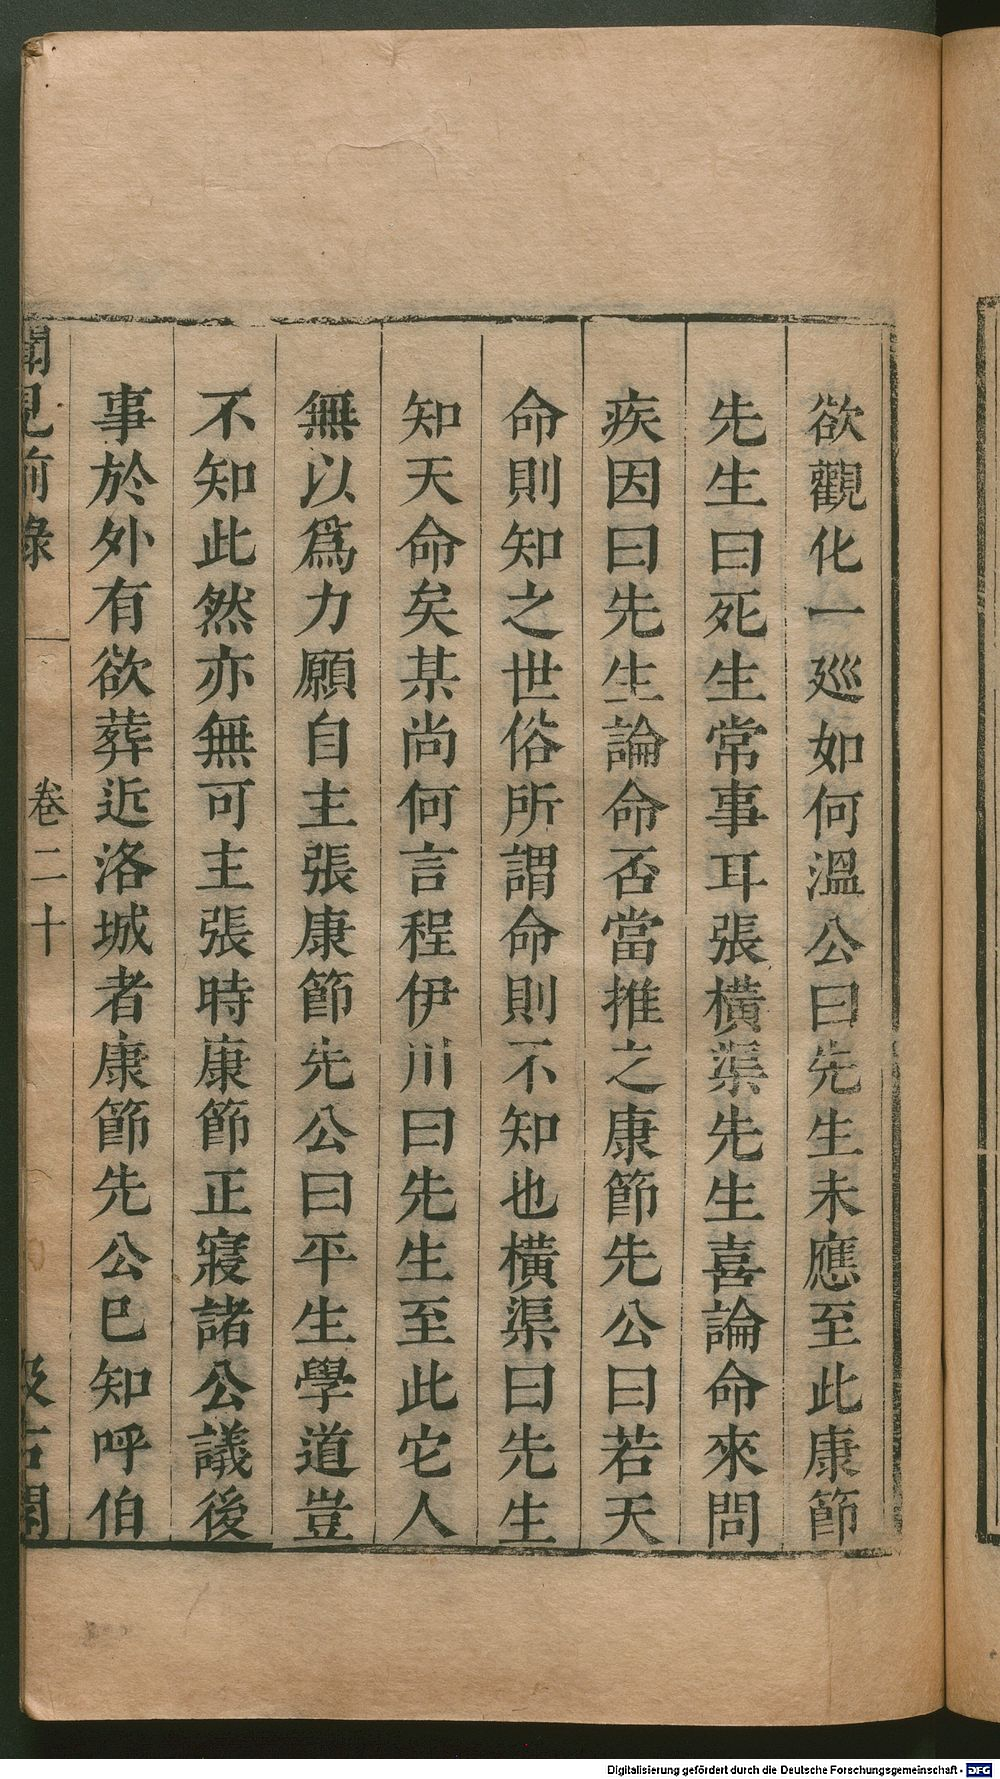 欲觀化一廵如何溫公曰先生未應至此康節
先生曰死生常事耳張橫渠先生喜論命來問
疾因曰先生論命否當推之康節先公曰若天
命則知之世俗所謂命則不知也橫渠曰先生
知天命矣某尚何言程伊川曰先生至此它人
無以爲力願自主張康節先公曰平生學道豈
不知此然亦無可主張時康節正寢諸公議後
事於外有欲葬近洛城者康節先公已知呼伯
聞見前錄
卷二十
汲古閣
Digitalisierung gefördert durch die Deutsche Forschungsgemeinschaft - DFG